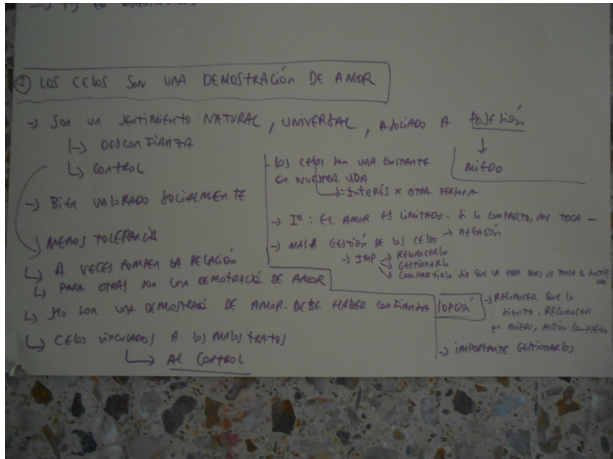 ② LOS CELOS SON UNA DEMOSTRACIÓN DE AMOR
-> SON UN SENTIMIENTO NATURAL, UNIVERSAL, ASOCIADO A POSESIÓN
↓
MIEDO
|-> DESCONFIANZA
↳ CONTROL
-> BIEN VALORADO SOCIALMENTE
↳ MENOS TOLERANCIA
↳ A VECES ROMPEN LA RELACIÓN
↳ PARA OTRAS SON UNA DEMOTRACIÓ DE AMOR
↳ NO SON UNA DEMOSTRACIÓ DE AMOR. DEBE HABER CONFIANZA
↳ CELOS VINCULADOS A LOS MALOS TRATOS
↳ AL CONTROL
- LOS CELOS SON UNA CONSTANTE
EN NUESTRA VIDA
↳ INTERÉS X OTRA PERSONA
-> Iª: EL AMOR ES LIMITADO. SI LO COMPARTO, ME TOCA -
-> MALA GESTIÓN DE LOS CELOS
-> NEGACIÓN
-> IMP
RECONOCERLO
GESTIONARLO
COMPARTIRLO SIN QUE LA OTRA
OPCIÓN
-> RECONOCER QUE LO
SIENTO. RECONOCER
MIEDO,
-> IMPORTANTE GESTIONARLOS